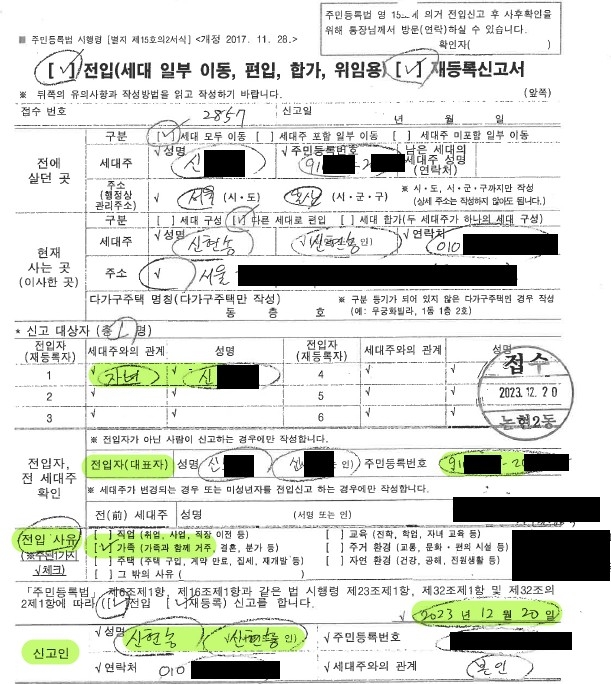 주민등록법 영 15 에 의거 전입신고 후 사후확인을
위해 통장님께서 방문(연락)하실 수 있습니다.
확인자( )
■ 주민등록법 시행령 [별지 제15호의2서식] <개정 2017. 11. 28.>
[√]전입(세대 일부 이동, 편입, 합가, 위임용) [√] 재등록신고서
※ 뒤쪽의 유의사항과 작성방법을 읽고 작성하기 바랍니다. (앞쪽)
접수 번호 2857 신고일 년 월 일
전에 살던 곳
구분 [√]세대 모두 이동 [ ] 세대주 포함 일부 이동 [ ] 세대주 미포함 일부 이동
세대주 √성명 신 √주민등록번호 91 -2 남은 세대의 세대주 성명 (연락처)
주소 (행정상 관리주소) √ 서울 (시·도) (시·군·구) ※ 시·도, 시·군·구까지만 작성
(상세 주소는 작성하지 않아도 됩니다.)
현재 사는 곳 (이사한 곳)
구분 [ ] 세대 구성 [√] 다른 세대로 편입 [ ] 세대 합가(두 세대주가 하나의 세대 구성)
세대주 √성명 신현승 신현승 인) √연락처 010
주소 √ 서울
다가구주택 명칭(다가구주택만 작성) 동 층 호
※ 구분 등기가 되어 있지 않은 다가구주택인 경우 작성
(예: 우궁화빌라, 1동 1층 2호)
* 신고 대상자 (총 1 명)
전입자 (재등록자) 세대주와의 관계 성명 전입자 (재등록자) 세대주와의 관계 성명
1 √ 자녀 √ 신 4 √ √
2 √ √ 5 √ √
3 √ √ 6 √ √
접수
2023. 12. 20
논현2동
전입자, 전 세대주 확인
※ 전입자가 아닌 사람이 신고하는 경우에만 작성합니다.
전입자(대표자) 성명 신 신 는 인) 주민등록번호 91 -2
※ 세대주가 변경되는 경우 또는 미성년자를 전입신고 하는 경우에만 작성합니다.
전(前) 세대주 성명 (서명 또는 인)
전입 사유
(※주된1가지
√체크)
[ ] 직업 (취업, 사업, 직장 이전 등) [ ] 교육 (진학, 학업, 자녀 교육 등)
[√] 가족 (가족과 함께 거주, 결혼, 분가 등) [ ] 주거 환경 (교통, 문화·편의 시설 등)
[ ] 주택 (주택 구입, 계약 만료, 집세, 재개발 등) [ ] 자연 환경 (건강, 공해, 전원생활 등)
[ ] 그 밖의 사유 ( )
「주민등록법」 제8조제1항, 제16조제1항과 같은 법 시행령 제23조제1항, 제32조제1항 및 제32조의
2제1항에 따라 ([√]전입 [√]재등록) 신고를 합니다.
√ 2023 년 12 월 20 일
신고인
√성명 신현승 신현승 인) √주민등록번호
√연락처 010 √세대주와의 관계 본인